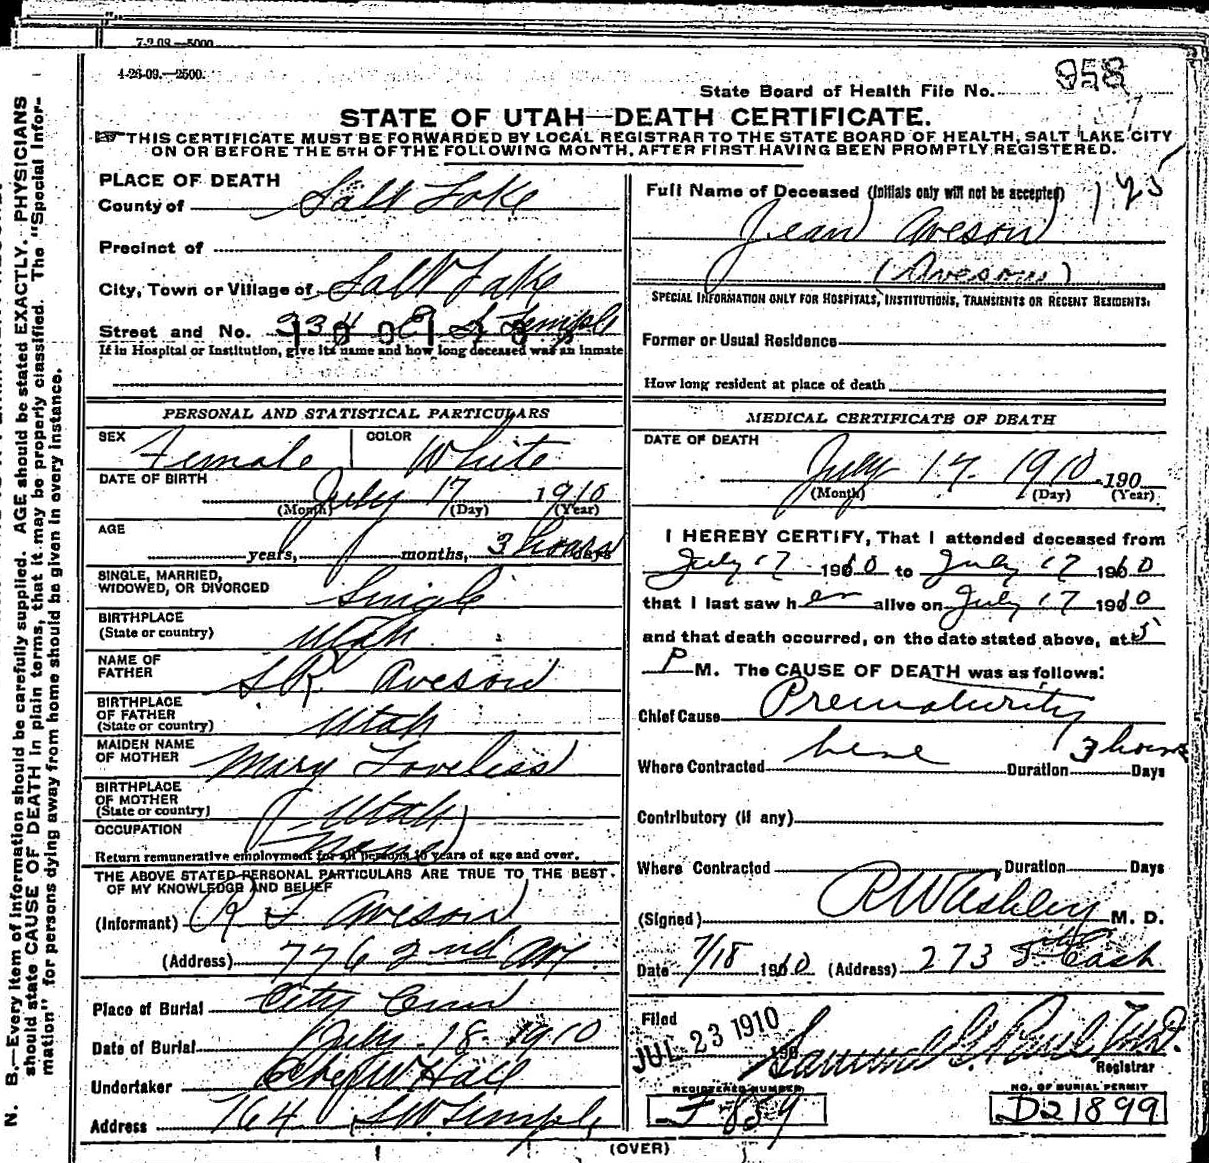 7-2 08.—5000
4-26-09.—2500.
State Board of Health File No. 958
STATE OF UTAH—DEATH CERTIFICATE.
THIS CERTIFICATE MUST BE FORWARDED BY LOCAL REGISTRAR TO THE STATE BOARD OF HEALTH, SALT LAKE CITY
ON OR BEFORE THE 5TH OF THE FOLLOWING MONTH, AFTER FIRST HAVING BEEN PROMPTLY REGISTERED.
PLACE OF DEATH
County of Salt Lake
Precinct of
City, Town or Village of Salt Lake
Street and No. 334 E S Temple
If in Hospital or Institution, give its name and how long deceased was an inmate
PERSONAL AND STATISTICAL PARTICULARS
SEX Female COLOR White
DATE OF BIRTH July 17 1910
(Month) (Day) (Year)
AGE years, months, 3 hours days
SINGLE, MARRIED,
WIDOWED, OR DIVORCED Single
BIRTHPLACE
(State or country) Utah
NAME OF
FATHER S.R. Aveson
BIRTHPLACE
OF FATHER
(State or country) Utah
MAIDEN NAME
OF MOTHER Mary Loveless
BIRTHPLACE
OF MOTHER
(State or country) Utah
OCCUPATION None
Return remunerative employment for all persons 10 years of age and over.
THE ABOVE STATED PERSONAL PARTICULARS ARE TRUE TO THE BEST
OF MY KNOWLEDGE AND BELIEF
(Informant) R F Aveson
(Address) 776 2nd Av.
Place of Burial City Cem
Date of Burial July 18. 1910
Undertaker W Hall
Address 164 S.W. Temple
Full Name of Deceased (Initials only will not be accepted) 125
Jean Aveson
(Aveson)
SPECIAL INFORMATION ONLY FOR HOSPITALS, INSTITUTIONS, TRANSIENTS OR RECENT RESIDENTS:
Former or Usual Residence
How long resident at place of death
MEDICAL CERTIFICATE OF DEATH
DATE OF DEATH
July 17. 1910 190
(Month) (Day) (Year)
I HEREBY CERTIFY, That I attended deceased from
July 17 1910 to July 17 1910
that I last saw her alive on July 17 1910
and that death occurred, on the date stated above, at 5
P M. The CAUSE OF DEATH was as follows:
Chief Cause Prematurity
Where Contracted here Duration 3 hours Days
Contributory (if any)
Where Contracted Duration Days
(Signed) R W Ashley M. D.
Date 7/18 1910 (Address) 273
Filed
JUL 23 1910 190 Samuel G. Paul M.D.
Registrar
REGISTERED NUMBER
F 859
NO. OF BURIAL PERMIT
D21899
(OVER)
N. B.—Every item of information should be carefully supplied. AGE should be stated EXACTLY. PHYSICIANS
should state CAUSE OF DEATH in plain terms, that it may be properly classified. The "Special Infor-
mation" for persons dying away from home should be given in every instance.